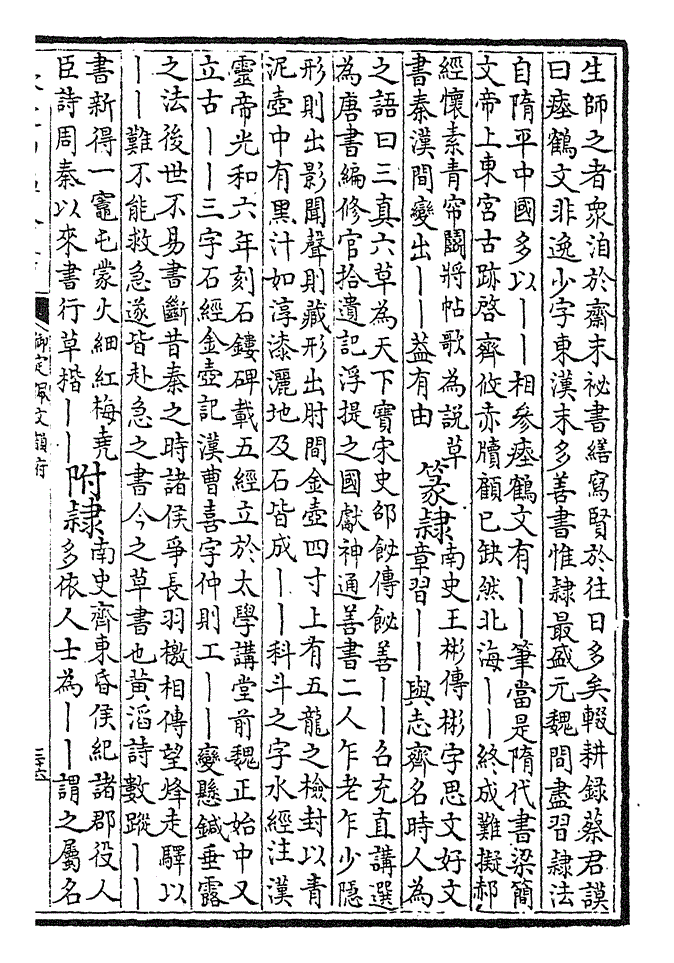 生師之者衆洎於齋末祕書繕寫賢於往日多矣輟耕録蔡君謨
曰瘞鶴文非逸少字東漢末多善書惟隷最盛元魏間盡習隷法
自隋平中國多以丨丨相參瘞鶴文有丨丨筆當是隋代書梁簡
文帝上東宫古跡啓齊攸赤牘顧已缺然北海丨丨終成難擬郝
經懷素青帘鬬將帖歌為説草
書秦漢間變出丨丨葢有由
篆隷
南史王彬傳彬字思文好文
章習丨丨與志齊名時人為
之語曰三真六草為天下寶宋史邵餙傳餙善丨丨召充直講選
為唐書編修官拾遺記浮提之國獻神通善書二人乍老乍少隱
形則出影聞聲則藏形出肘間金壺四寸上有五龍之檢封以青
泥壺中有黑汁如淳漆灑地及石皆成丨丨科斗之字水經注漢
靈帝光和六年刻石鏤碑載五經立於太學講堂前魏正始中又
立古丨丨三字石經金壺記漢曹喜字仲則工丨丨變懸鍼垂露
之法後世不易書斷昔秦之時諸侯爭長羽檄相傳望烽走驛以
丨丨難不能救急遂皆赴急之書今之草書也黄滔詩數蹤丨丨
書新得一竈屯蒙火細紅梅堯
臣詩周秦以來書行草楷丨丨
附隷
南史齊東昏侯紀諸郡役人
多依人士為丨丨謂之屬名
御定佩文韻府